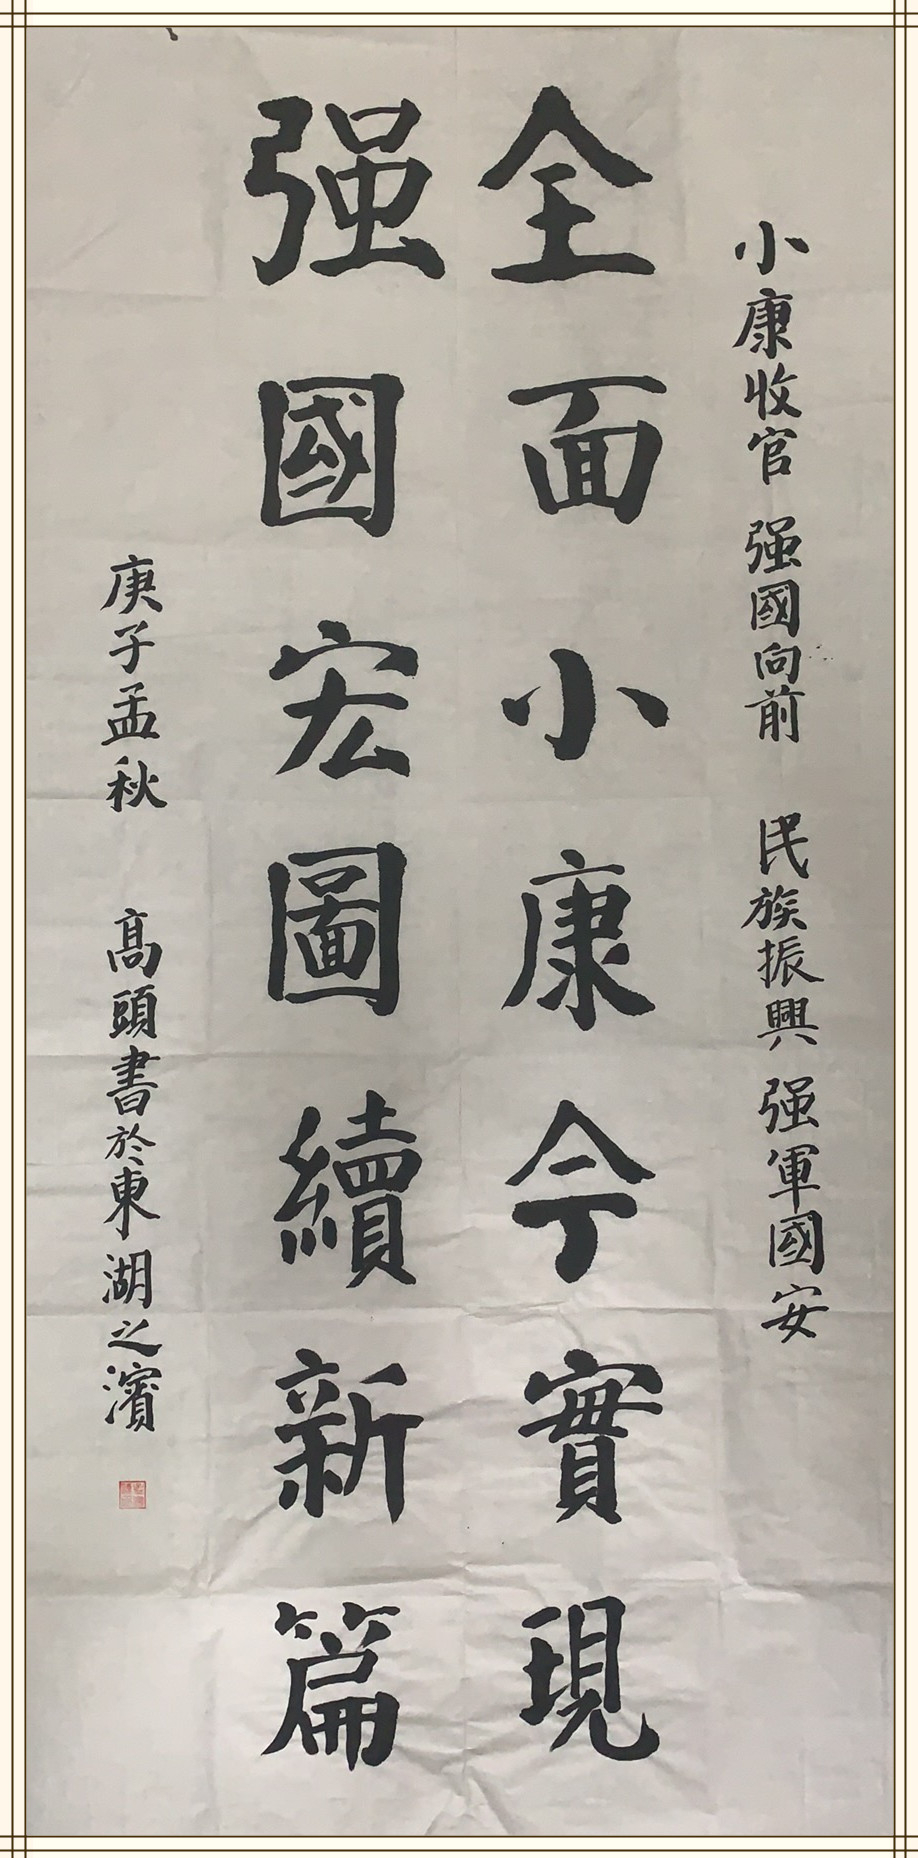 小康收官 强國向前 民族振興 强軍國安
全面小康今實現
强國宏圖續新篇
庚子孟秋 髙頭書於東湖之濱